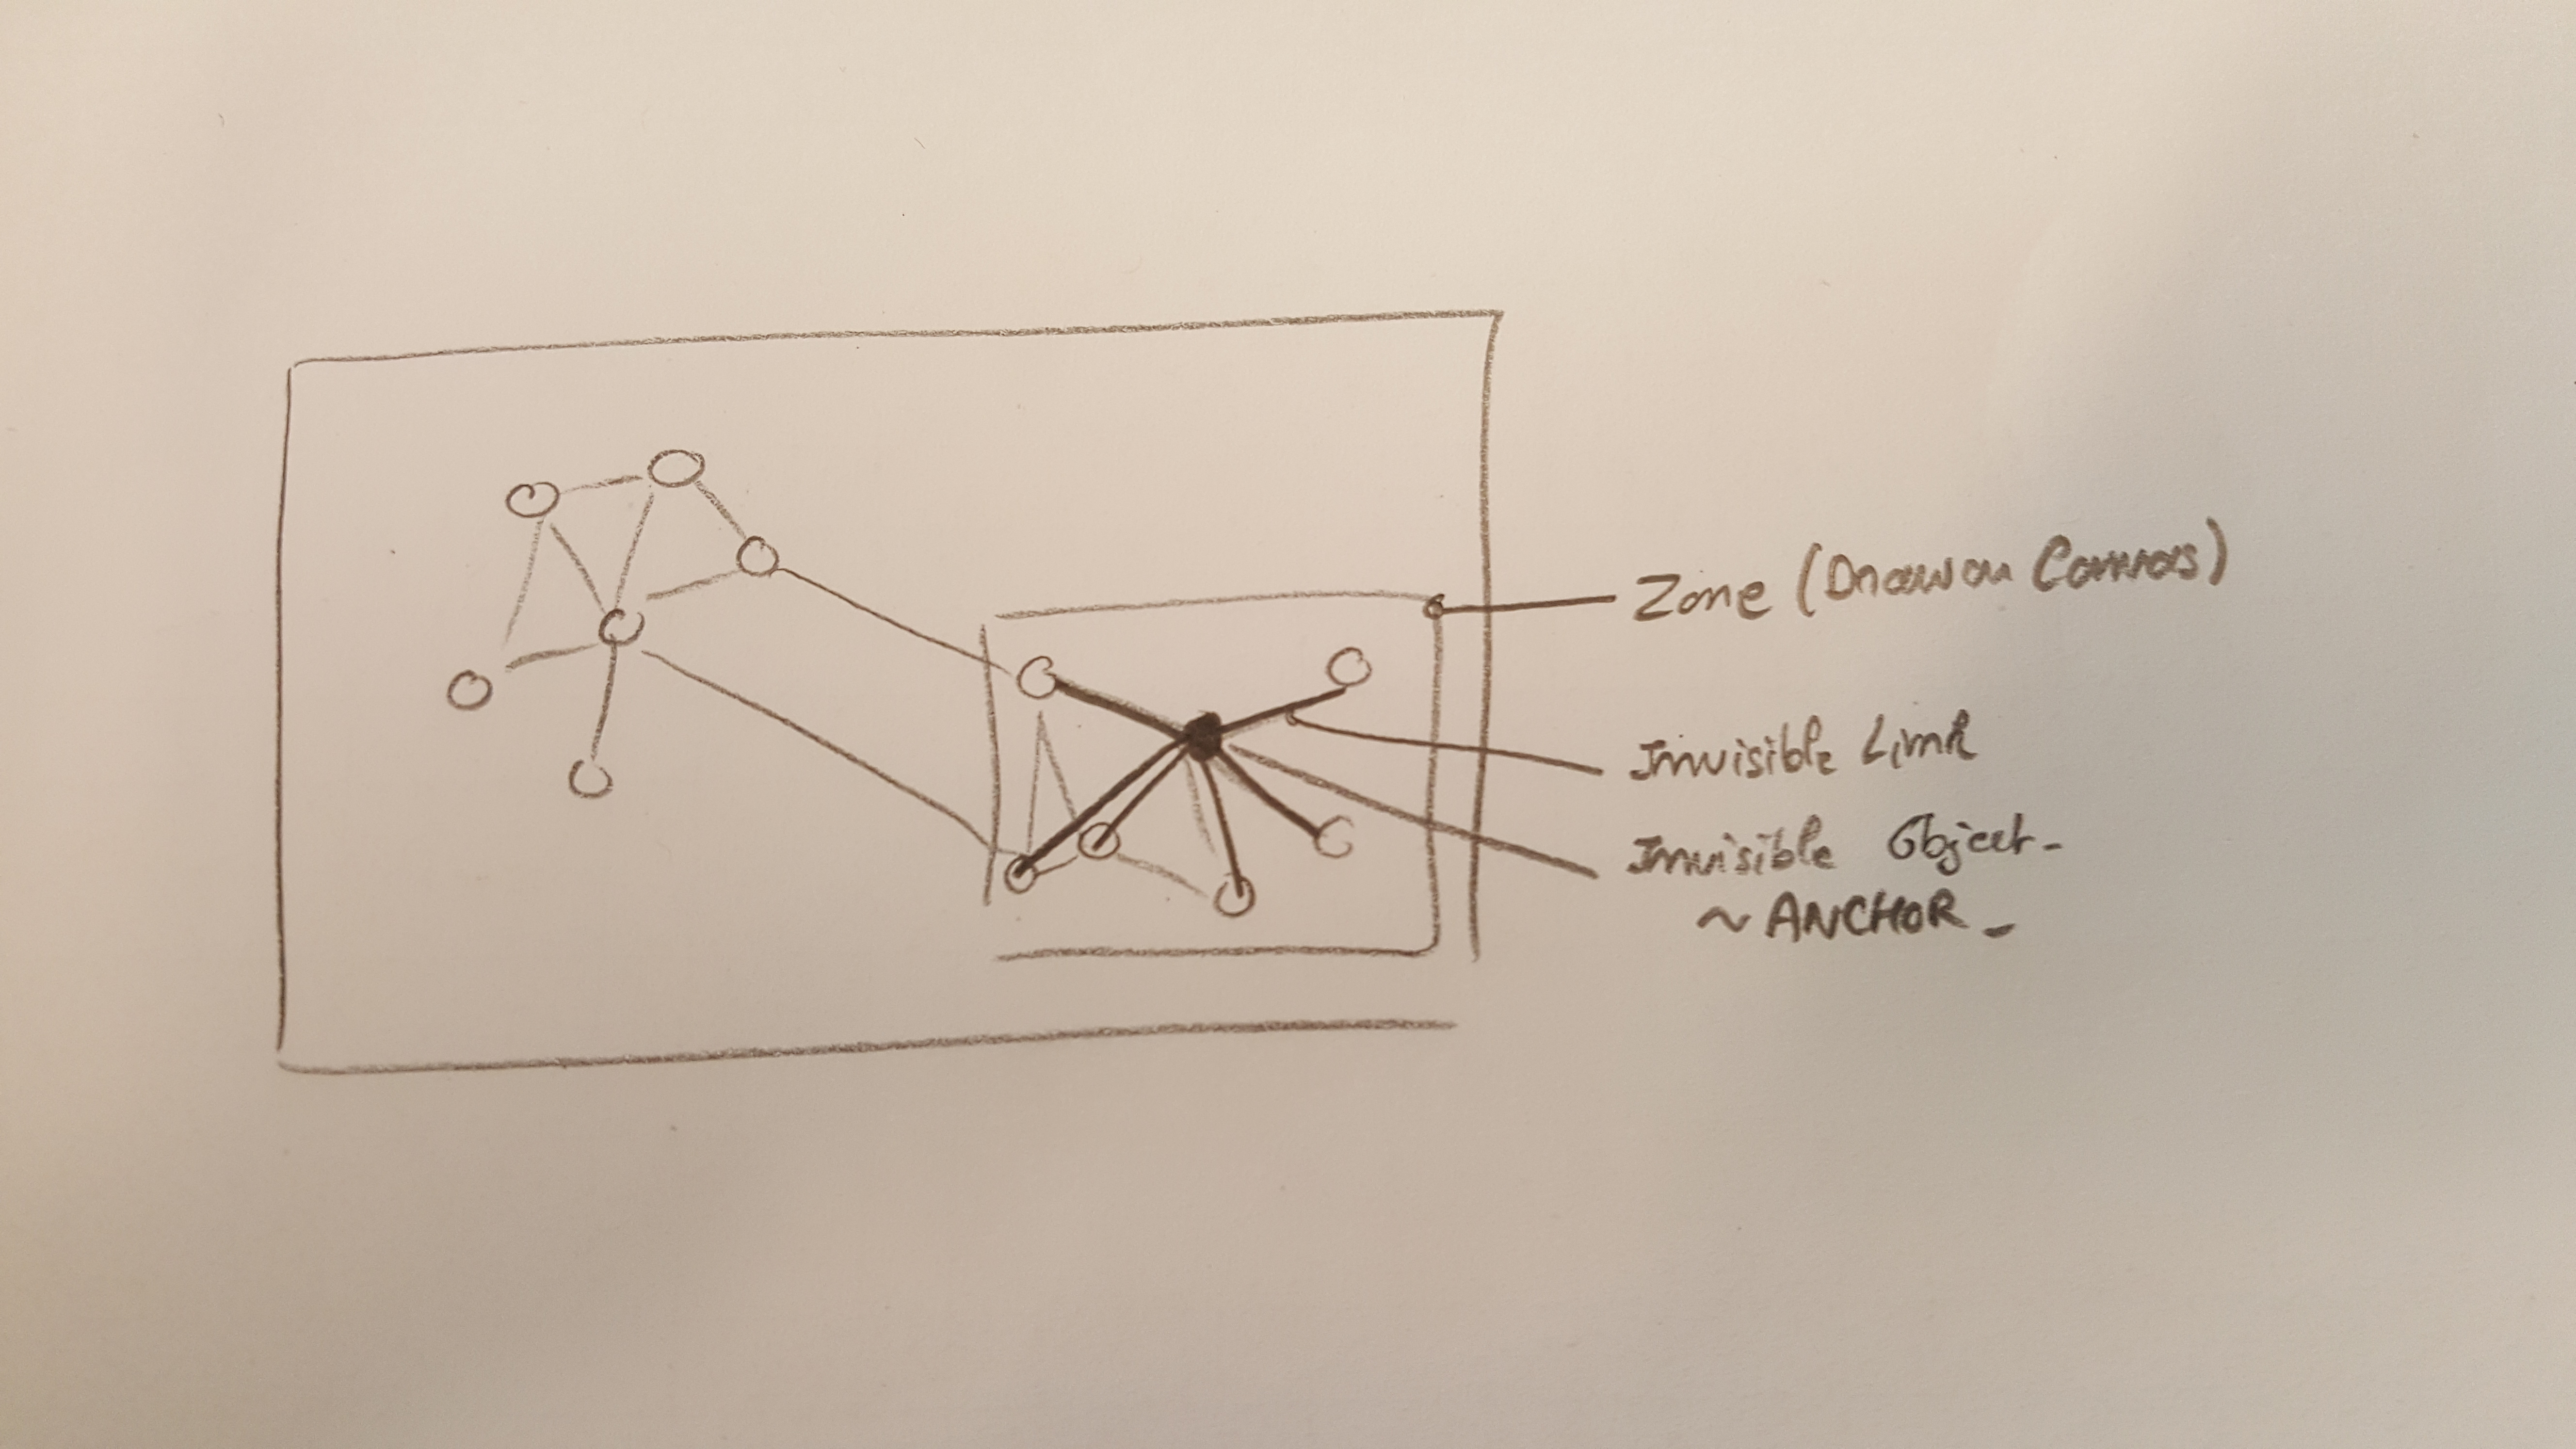 Zone (Drawn on Canvas)
Invisible Link
Invisible Object -
~ ANCHOR -